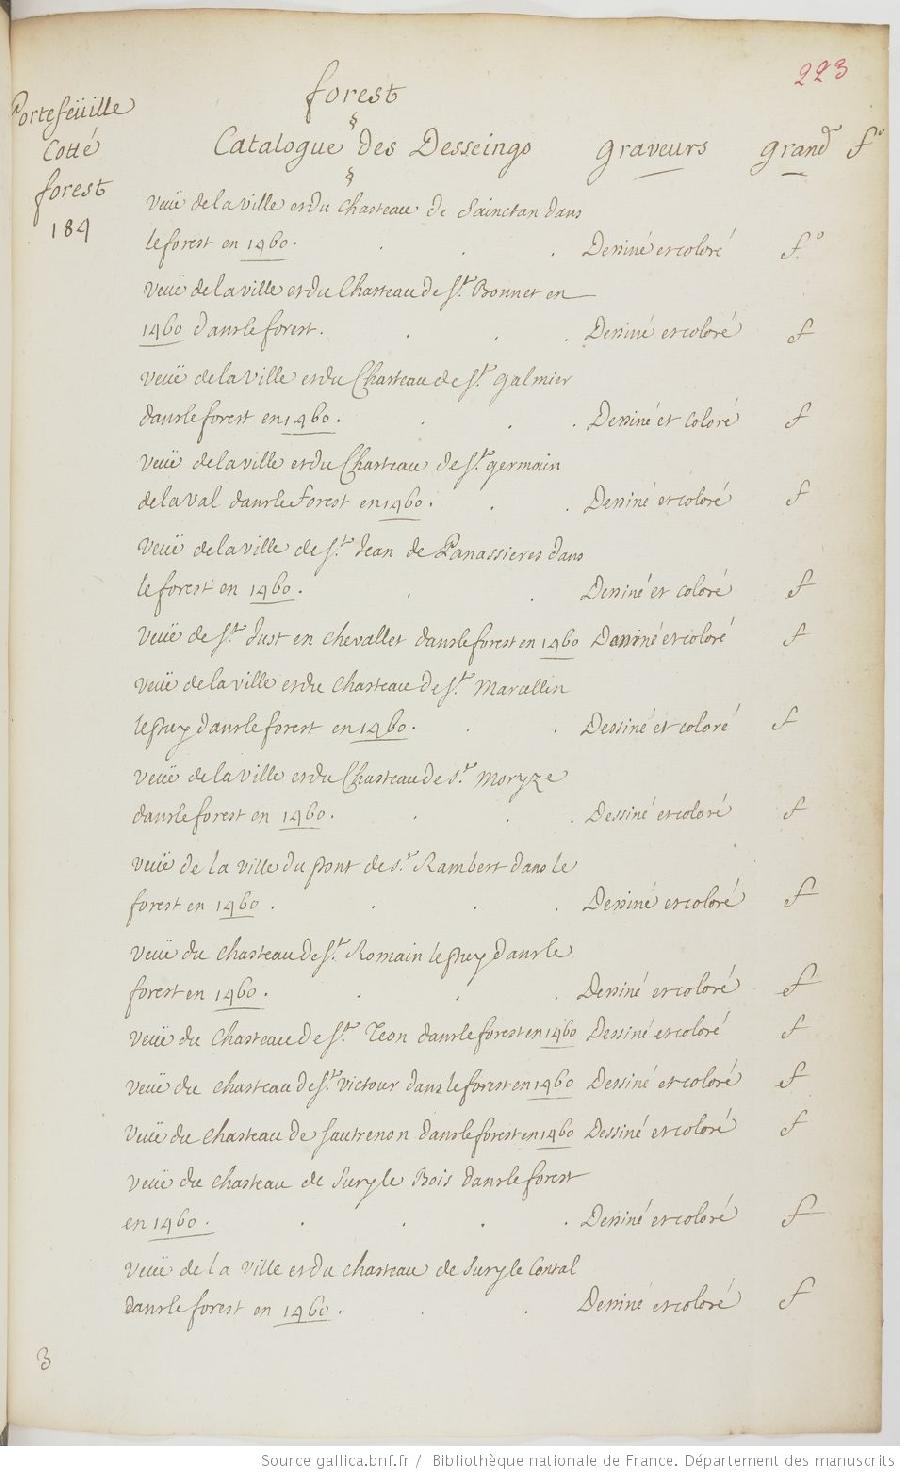 223
forest
Portefeüille
Cotté
forest
184
§
Catalogue des Desseings graveurs grand f.º
§
Veüe de la ville et du Chasteau de Sainctan dans
le forest en 1460. Dessiné et coloré f.º
Veüe de la ville et du Chasteau de St. Bonnet en
1460 dans le forest. Dessiné et coloré f
Veüe de la Ville et du Chasteau de St. galmier
dans le forest en 1460. Dessiné et Coloré f
Veüe de la ville et du Chasteau de St. germain
de la val dans le forest en 1460. Dessiné et coloré f
Veüe de la ville de St. Jean de Panassieres dans
le forest en 1460. Dessiné et coloré f
Veüe de St. Just en chevallet dans le forest en 1460 Dessiné et coloré f
Veüe de la ville et du chasteau de St. Marcellin
le puy dans le forest en 1460. Dessiné et coloré f
Veüe de la ville et du Chasteau de St. Moryze
dans le forest en 1460. Dessiné et coloré f
Veüe de la ville du pont de St. Rambert dans le
forest en 1460. Dessiné et coloré f
Veüe du chasteau de St. Romain le puy dans le
forest en 1460. Dessiné et coloré f
Veüe du Chasteau de St. dans le forest en 1460 Dessiné et coloré f
Veüe du chasteau de St. Victour dans le forest en 1460 Dessiné et coloré f
Veüe du chasteau de Sautrenon dans le forest en 1460 Dessiné et coloré f
Veüe du chasteau de Sury le Bois dans le forest
en 1460. Dessiné et coloré f
Veüe de la Ville et du chasteau de Sury le Contal
dans le forest en 1460. Dessiné et coloré f
3
Source gallica.bnf.fr / Bibliothèque nationale de France. Département des manuscrits